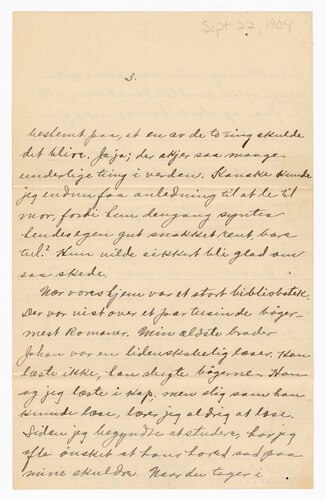 Sept 22, 1904
3.
bestemt paa, at en av de to ting skulde
det blive. Ja ja; der skjer saa mange
underlige ting i verden. Kanske kunde
jeg endnu faa anledning til at le til
mor, fordi hun dengang syntes
hendes egen gut snakket rent bare
tul? Hun vilde sikkert bli glad om
saa skede.
Nær vores hjem var et stort bibliothek.
Der var vist over et par tusinde bøger
mest Romaner. Min ældste broder
Johan var en lidenskabelig læser. Han
læste ikke, han slugte bøgerne. Han
og jeg læste i kap, men slig som han
kunde læse, lærer jeg aldrig at læse.
Siden jeg begyndte at studere, har jeg
ofte ønsket at hans hoved sad paa
mine skuldre. Naar du tager i